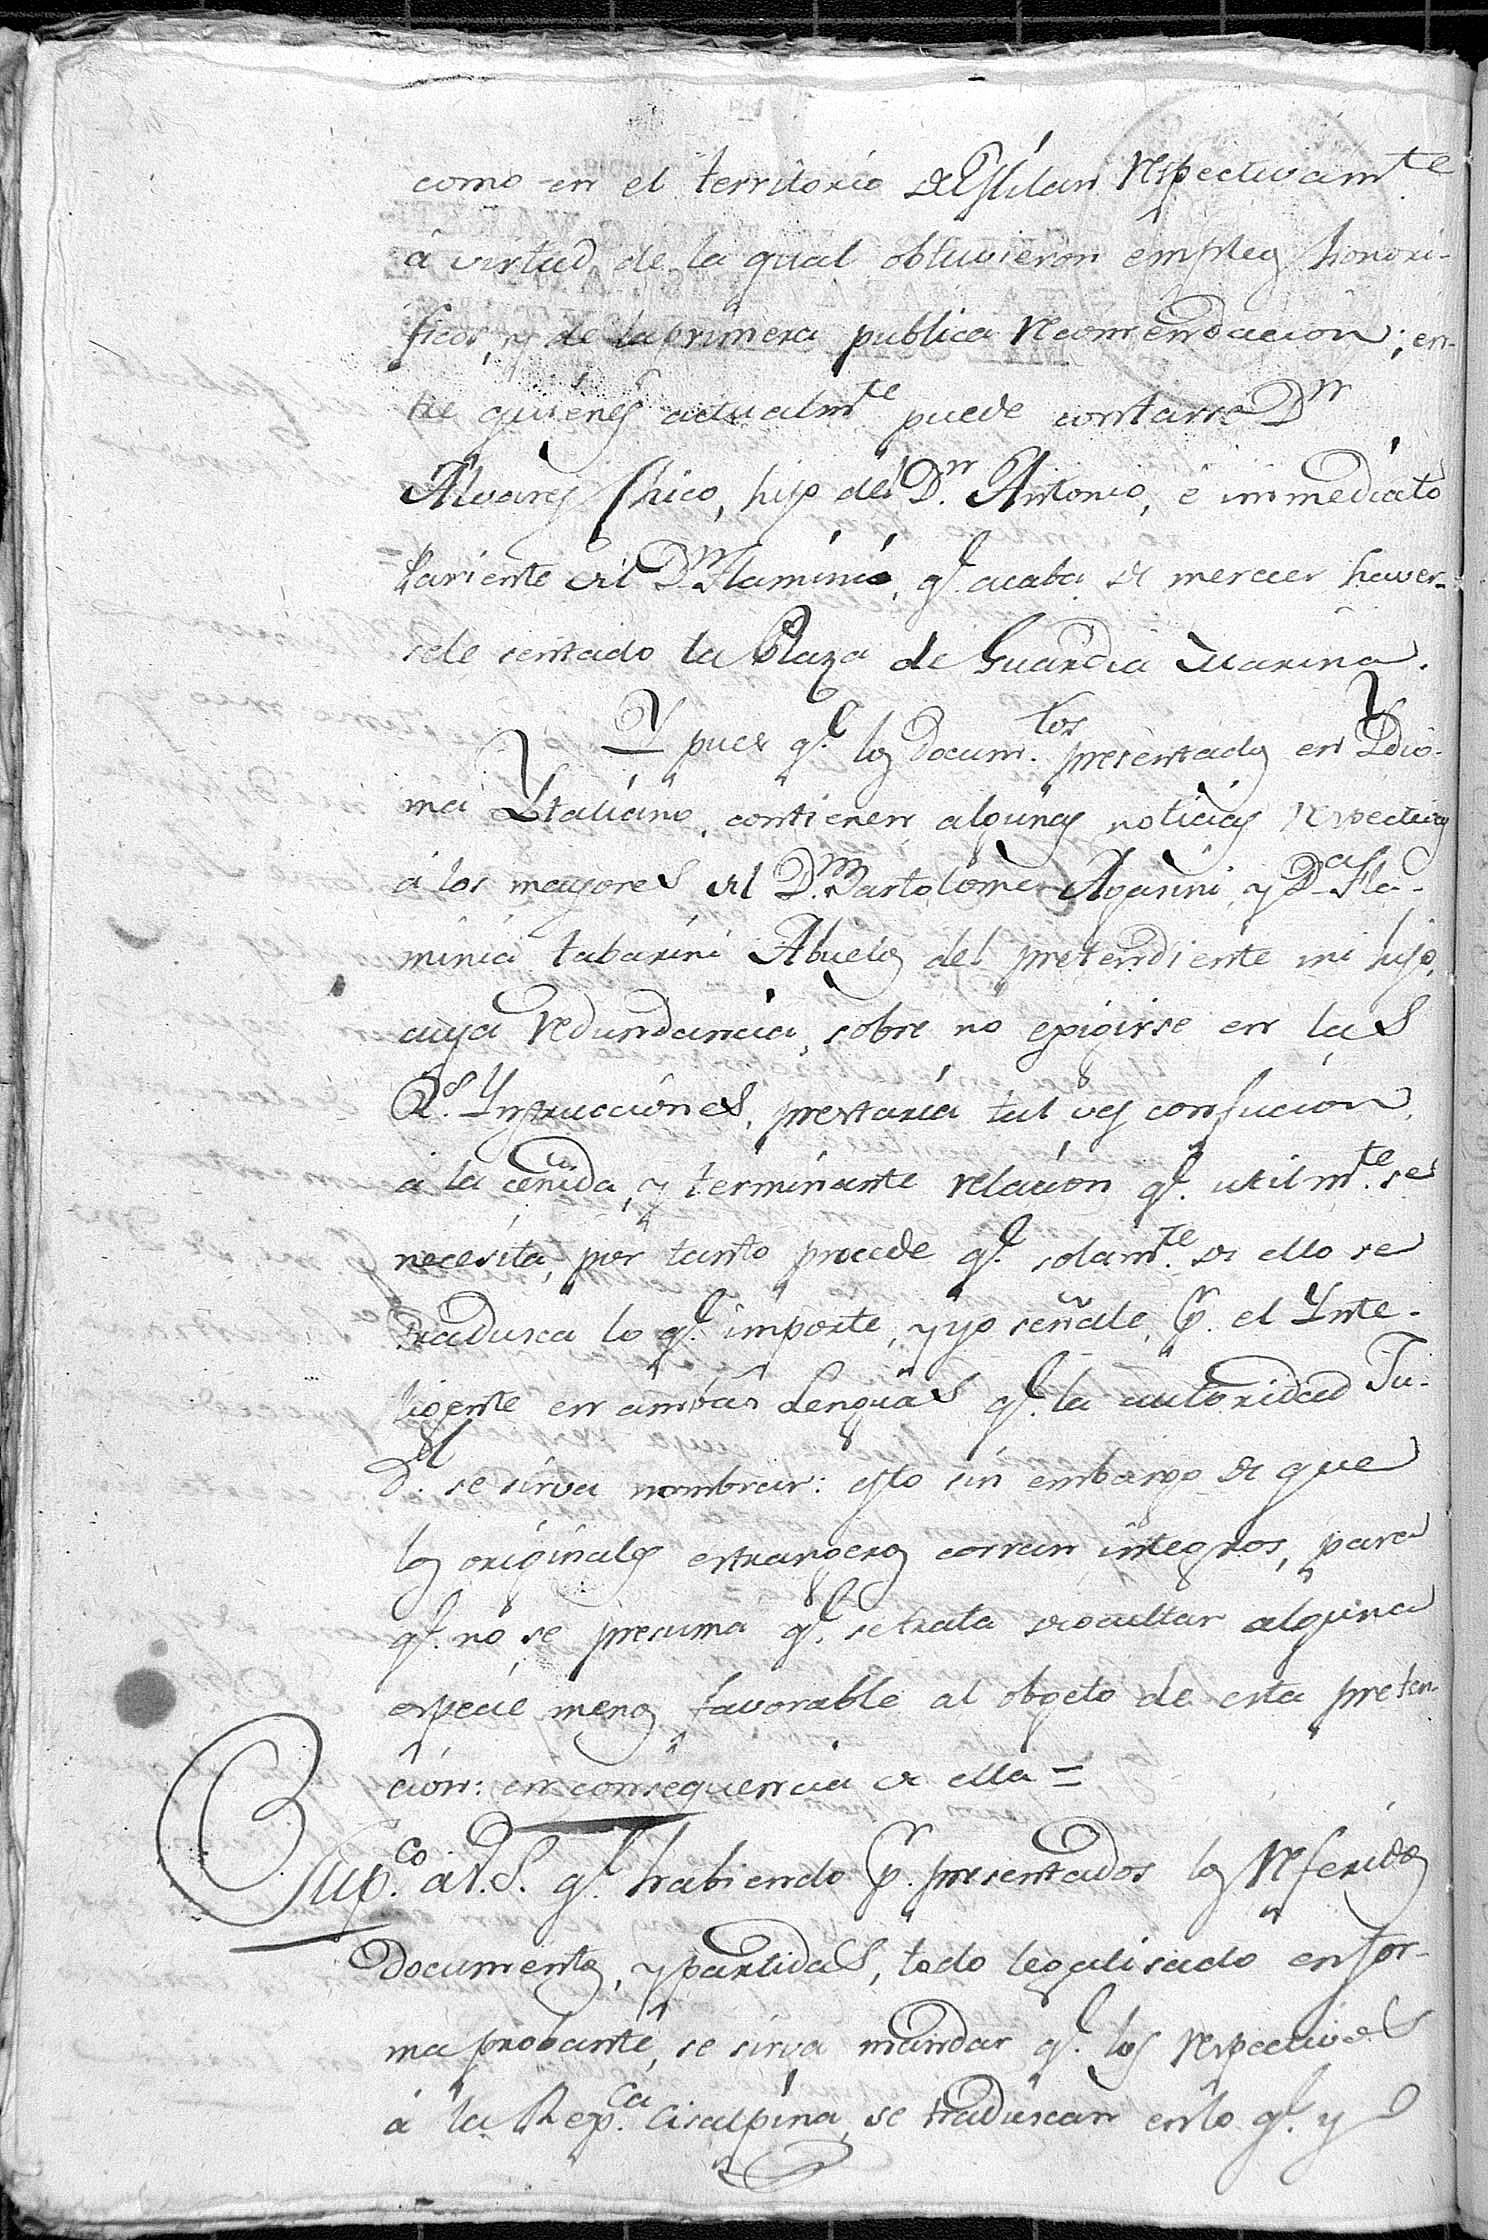 como en el territorio de Milan respectivamte
á virtud de la qual obtuvieron empleos honori-
ficos, y de la primera publica recomendacion; en-
tre quienes actualmte puede contarse Dn
Alvares Chico, hijo del Dn. Antonio, é immediato
Pariente del Dn Flaminio, qe. acaba de mereser haver-
sele sentado la Plaza de Guardia Marina.
Y pues qe. los Docum.tos presentados en Ydio-
ma Ytaliano, contienen algunas noticias respectivas
á los mayores del Dn. Bartolome Agarini, y Da. Fla-
minia tabarini Abuelos del pretendiente mi hijo,
cuya redundancia, sobre no exigirse en laS
Rs. YnstruccioneS, prestaria tal ves confucion
á la ceñida, y terminante relacion qe. utilm.te se
necesita, por tanto procede qe. solam.te de ello se
tradusca lo qe. importe, y yo señale, pr. el Ynte-
ligente en ambas LenguaS qe. la autoridad Ju-
dl. se sirva nombrar: esto sin embargo de que
los originales estrangeros corran integros, para
qe. no se presuma qe. se trata de ocultar alguna
especie menos favorable al obgeto de esta preten-
cion: en consequencia de ella=
Sup.co a V.S. qe. habiendo pr. presentados los referidos
Documentos, y partidaS, todo legalisado en for-
ma probante, se sirva mandar qe. los respectivoS
á la Rep.ca Cisalpina, se traduscan en lo qe. yo